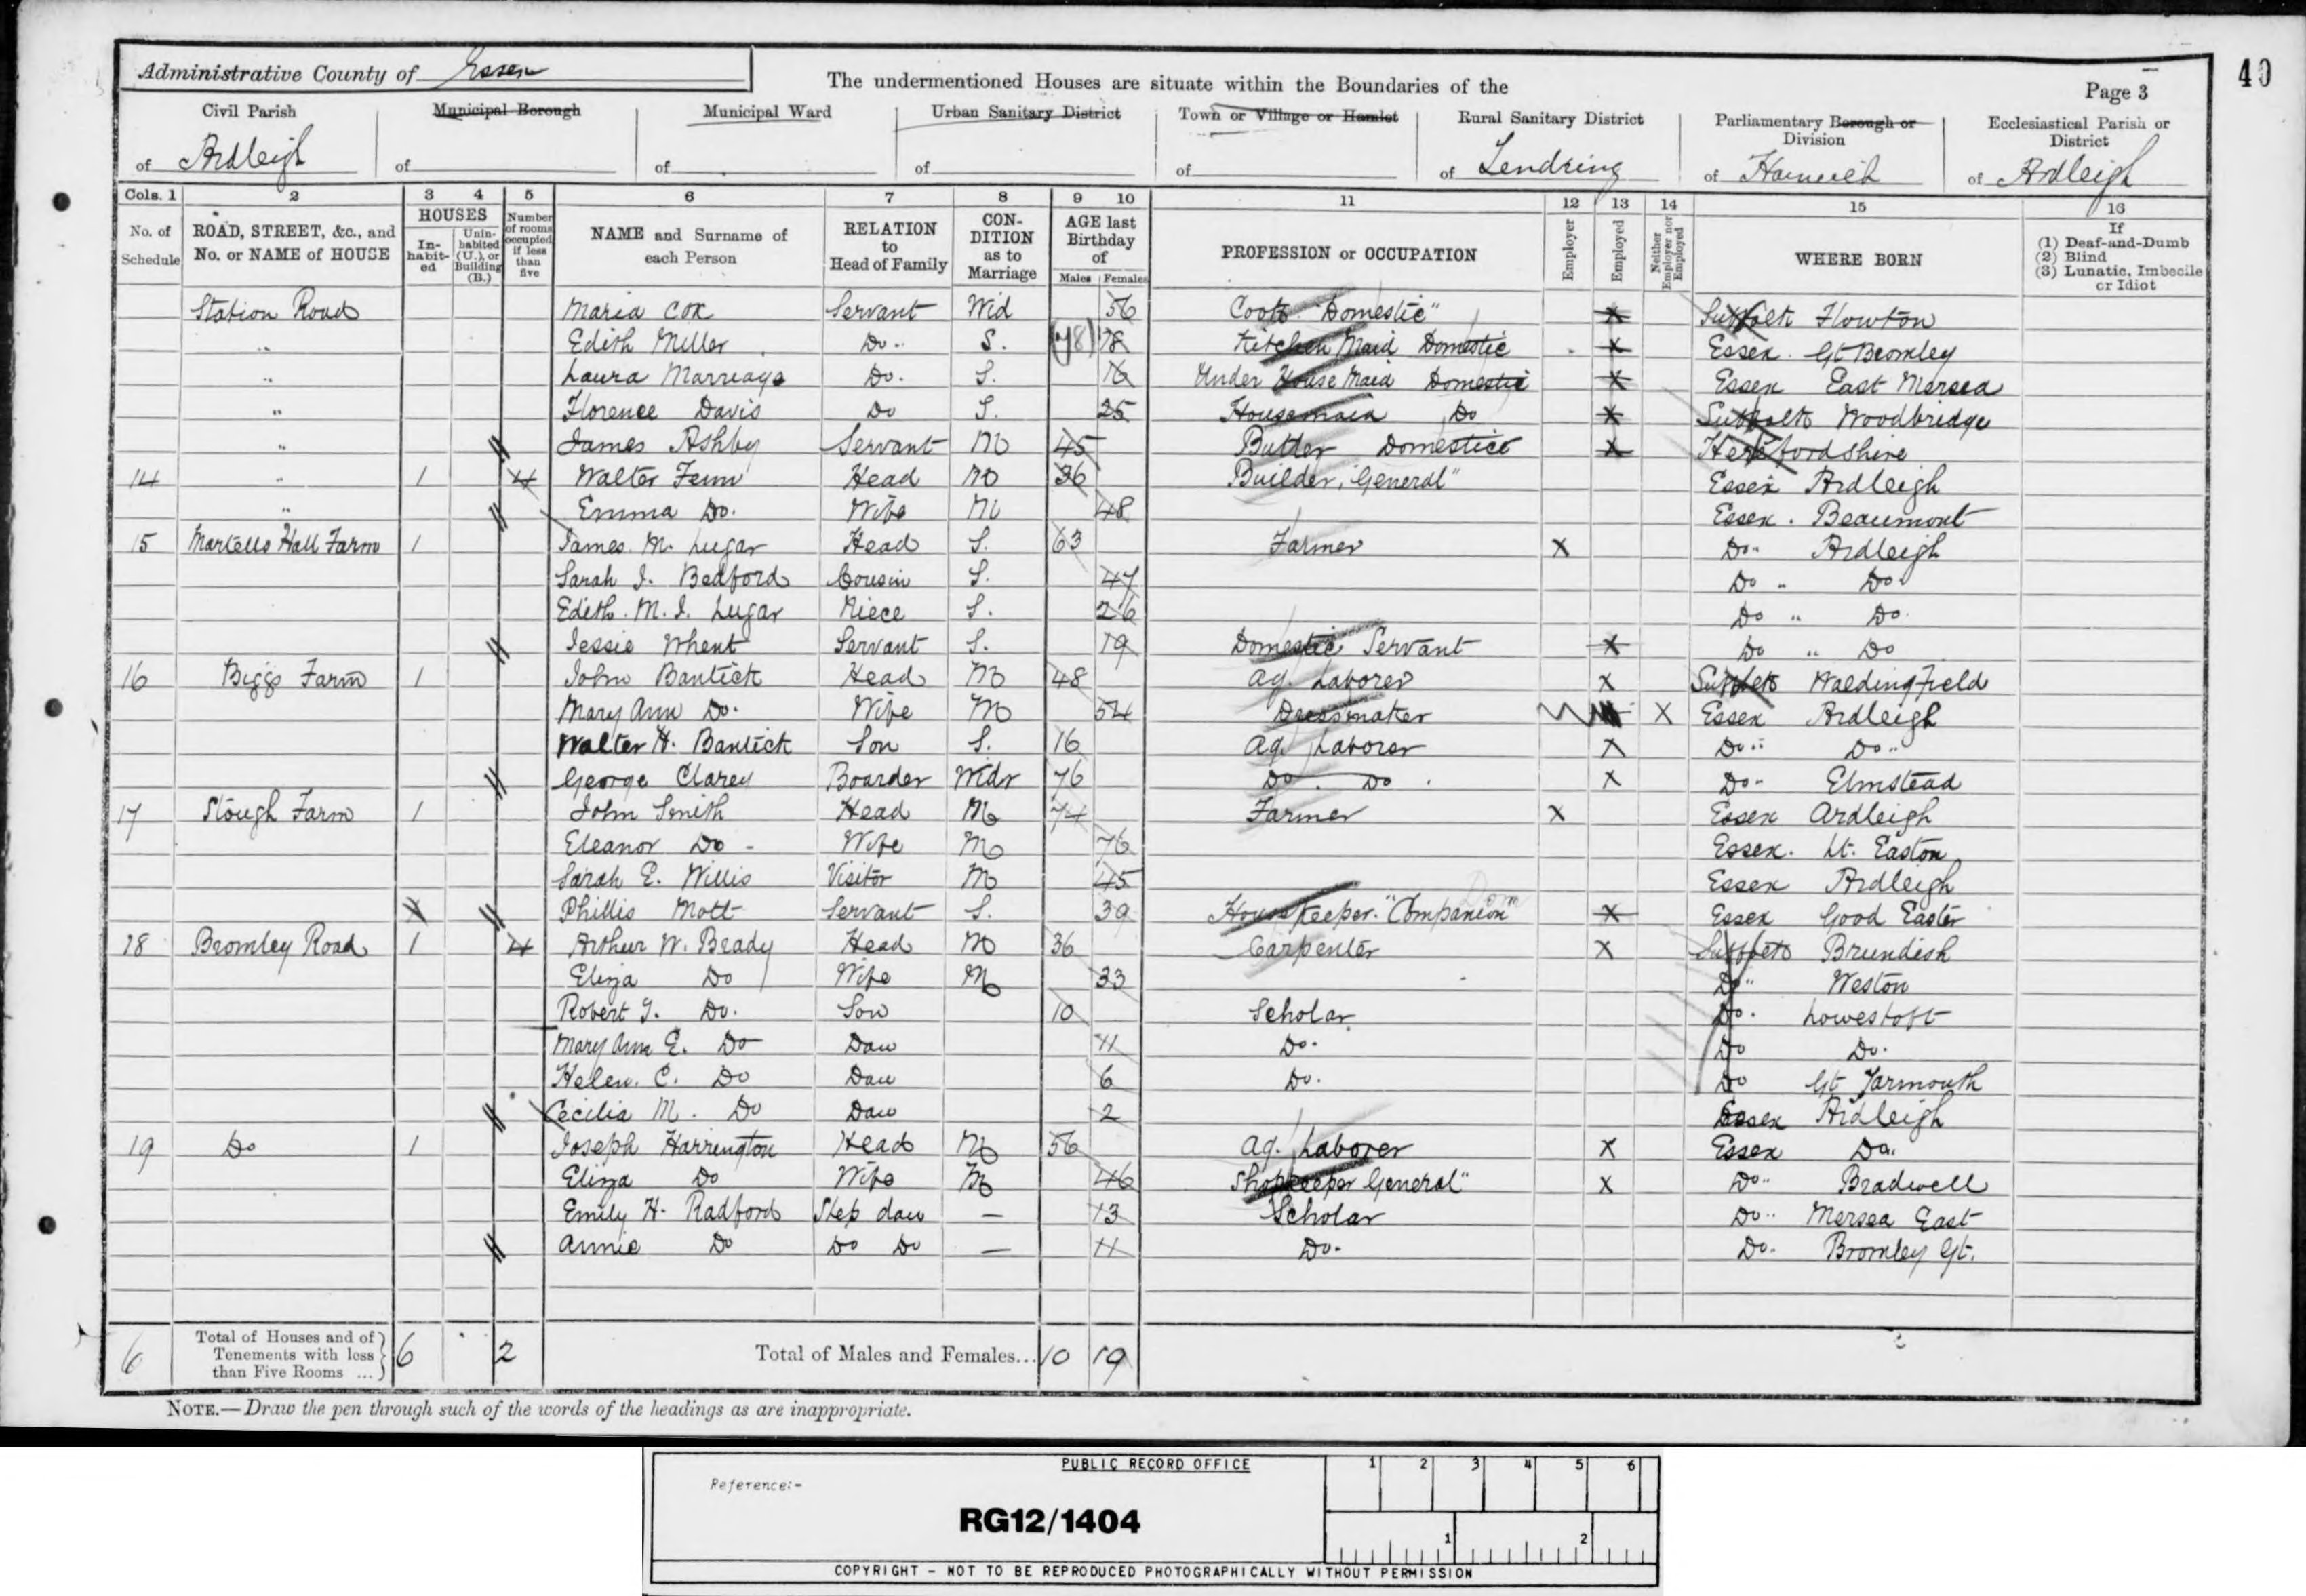 Administrative County of Essex
The undermentioned Houses are situate within the Boundaries of the
Page 3
40
Civil Parish
Municipal Borough
Municipal Ward
Urban Sanitary District
Town or Village or Hamlet
Rural Sanitary District
Parliamentary Borough or Division
Ecclesiastical Parish or District
of Ardleigh
of
of
of
of
of Tendring
of Harwich
of Ardleigh
Cols. 1 2 3 4 5 6 7 8 9 10 11 12 13 14 15 16
No. of Schedule
ROAD, STREET, &c., and No. or NAME of HOUSE
HOUSES
In-habit-ed
Unin-habited (U.), or Building (B.)
Number of rooms occupied if less than five
NAME and Surname of each Person
RELATION to Head of Family
CON-DITION as to Marriage
AGE last Birthday of
Males Females
PROFESSION or OCCUPATION
Employer
Employed
Neither Employer nor Employed
WHERE BORN
If
(1) Deaf-and-Dumb
(2) Blind
(3) Lunatic, Imbecile or Idiot
Station Road Maria Cox Servant Wid 56 Cook "Domestic" X Suffolk Flowton
" Edith Miller Do. S. 18 Kitchen Maid Domestic X Essex Gt Bromley
" Laura Marriage Do. S. 16 Under House Maid Domestic X Essex East Mersea
" Florence Davis Do S. 25 Housemaid Do X Suffolk Woodbridge
" James Ashby Servant M 45 Butler Domestic X Herefordshire
14 " 1 4 Walter Fenn Head M 36 Builder, "General" Essex Ardleigh
" Emma Do. Wife M 48 Essex. Beaumont
15 Martells Hall Farm 1 James. M. Lugar Head S. 63 Farmer X Do. Ardleigh
Sarah J. Bedford Cousin S. 47 Do " Do.
Edith. M. J. Lugar Niece S. 26 Do " Do.
Jessie Whent Servant S. 19 Domestic Servant X Do " Do
16 Biggs Farm 1 John Bantick Head M 48 Ag. Laborer X Suffolk Waldingfield
Mary Ann Do. Wife M 54 Dressmaker X Essex Ardleigh
Walter H. Bantick Son S. 16 Ag. Laborer X Do.. Do..
George Clarey Boarder Widr 76 Do. Do. X Do. Elmstead
17 Slough Farm 1 John Smith Head M 74 Farmer X Essex Ardleigh
Eleanor Do - Wife M 76 Essex. Lt. Easton
Sarah E. Willis Visitor M 45 Essex Ardleigh
Phillis Mott Servant S. 39 Housekeeper. "Companion" Dom X Essex Good Easter
18 Bromley Road 1 4 Arthur W. Brady Head M 36 Carpenter X Suffolk Brundish
Eliza Do Wife M 33 Do.. Weston
Robert J. Do. Son 10 Scholar Do. Lowestoft
Mary Ann E. Do Dau 11 Do. Do Do.
Helen. C. Do Dau 6 Do. Do Gt Yarmouth
Cecilia M. Do Dau 2 Essex Ardleigh
19 Do 1 Joseph Harrington Head M 56 Ag. Laborer X Essex Do..
Eliza Do Wife M 46 Shopkeeper General" X Do.. Bradwell
Emily H. Radford Step dau — 13 Scholar Do.. Mersea East
Annie Do Do Do — 11 Do. Do. Bromley Gt.
6 Total of Houses and of Tenements with less than Five Rooms ... 6 2 Total of Males and Females... 10 19
NOTE.—Draw the pen through such of the words of the headings as are inappropriate.
PUBLIC RECORD OFFICE
1 2 3 4 5 6
Reference:-
RG12/1404
1 2
COPYRIGHT - NOT TO BE REPRODUCED PHOTOGRAPHICALLY WITHOUT PERMISSION